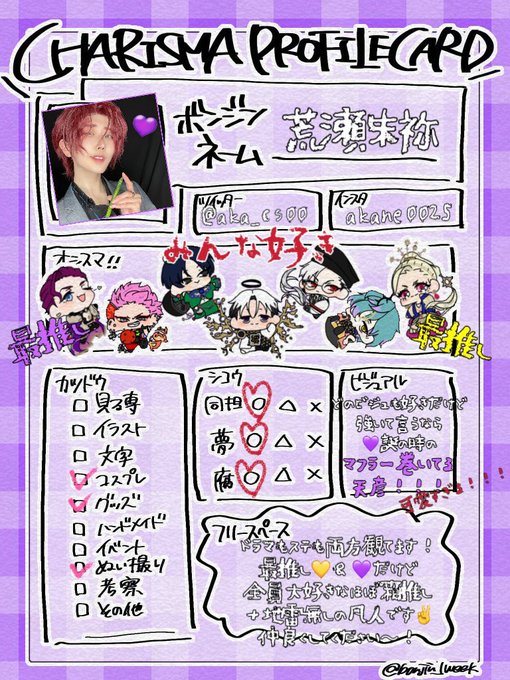 CHARISMA PROFILECARD
ボンジン
ネーム
荒瀬朱祢
ツイッター
@aka_cs00
インスタ
akane0025
みんな好き
オニスマ!!
最推し
最推し
カツドウ
見る専
イラスト
文字
コスプレ
グッズ
ハンドメイド
イベント
ぬい撮り
考察
その他
シュウ
同担 ○ △ ×
夢 ○ △ ×
腐 ○ △ ×
ビジュアル
どのビジュも好きだけど
強いて言うなら
💜誕の時の
マフラー巻いてる
天彦!!!
可愛すぎる!!!
フリースペース
ドラマもステも両方観てます!
最推し💛&💜だけど
全員大好きなほぼ箱推し
+地雷無しの凡人です✌
仲良くしてください〜!